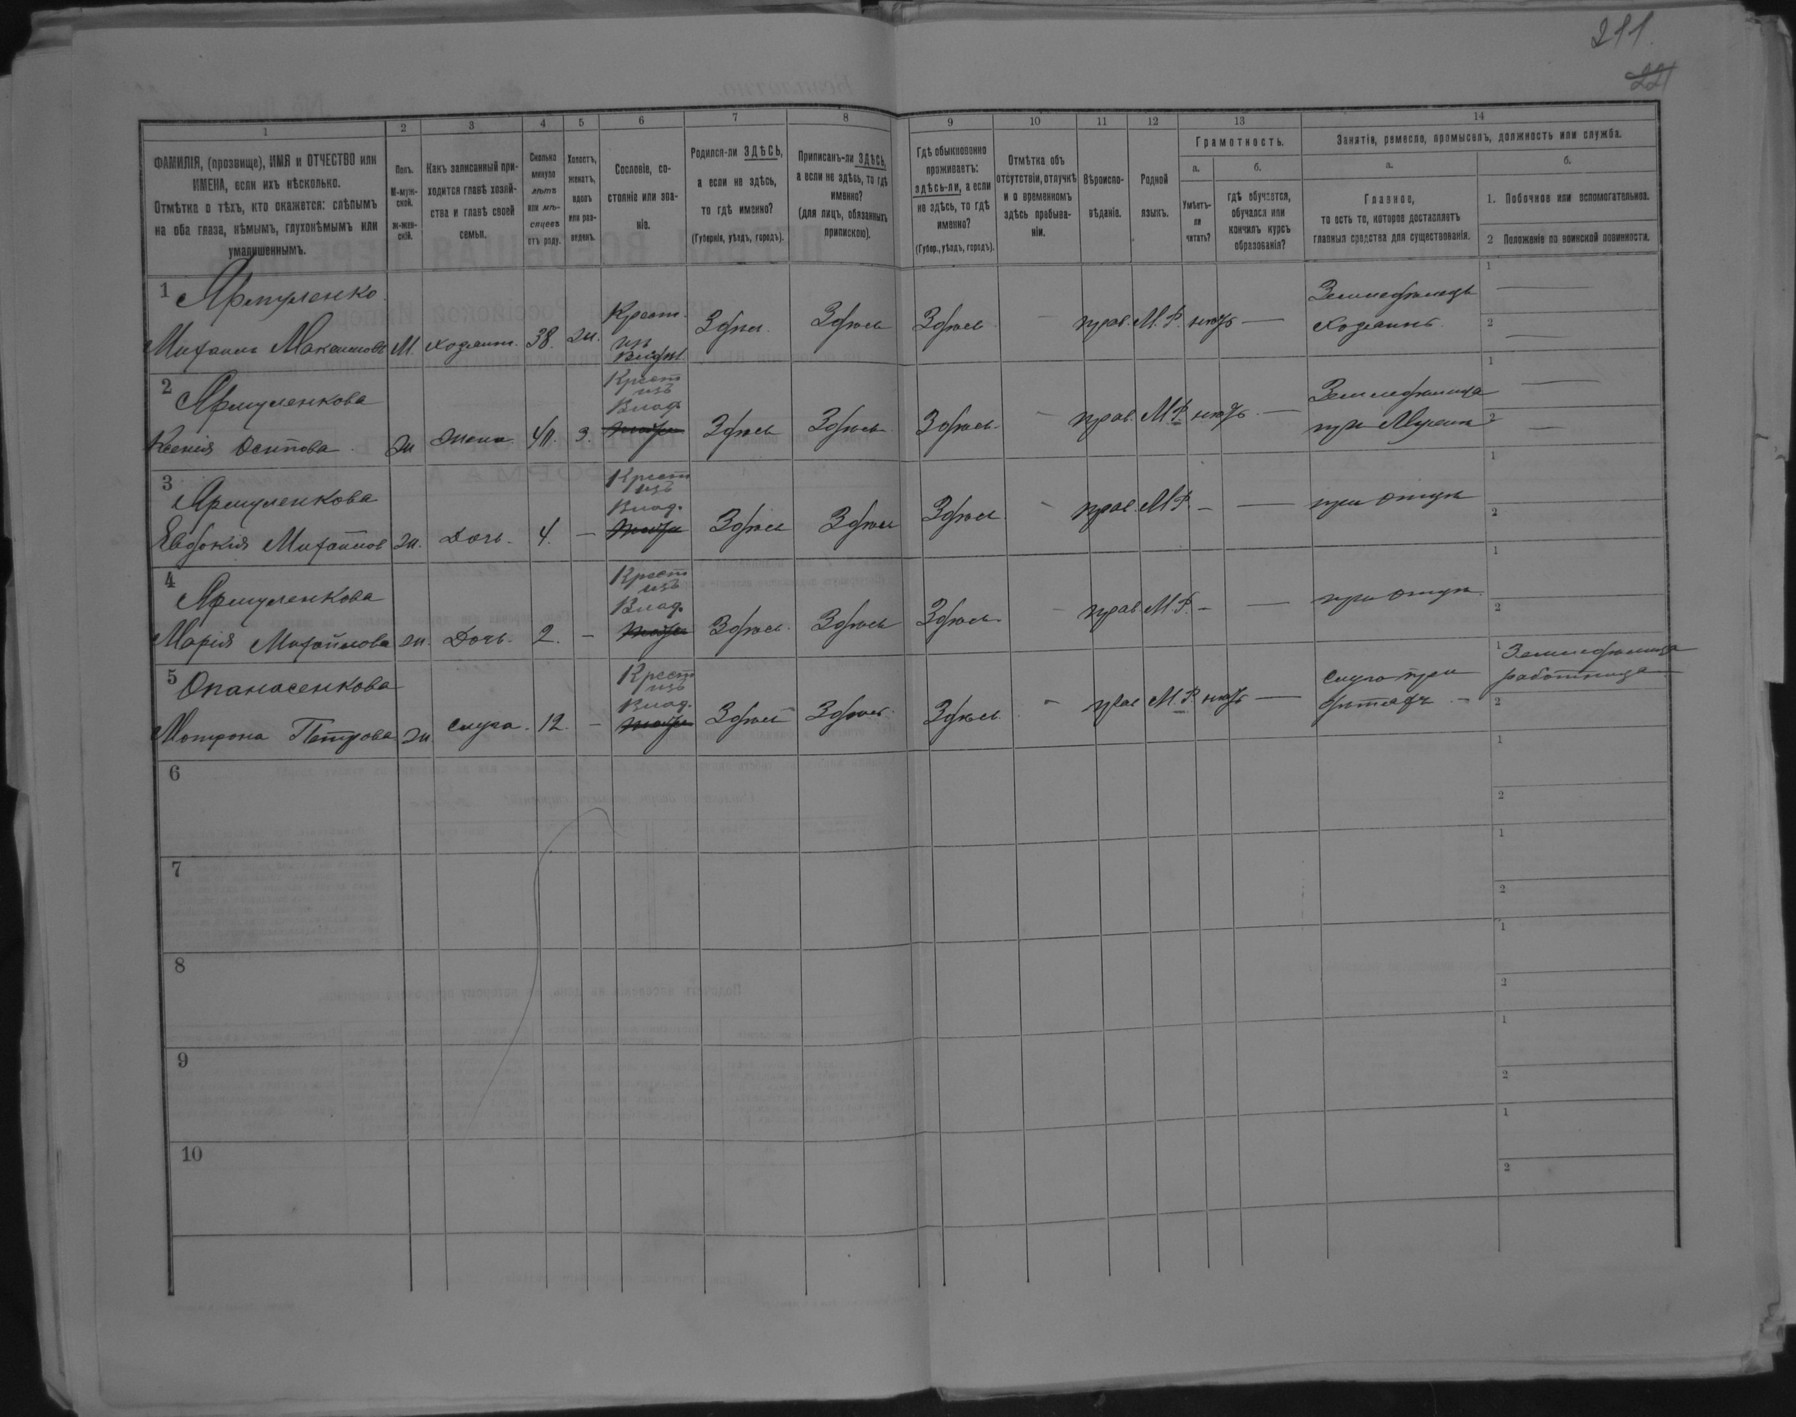 211.
221
1 2 3 4 5 6 7 8 9 10 11 12 13 14
ФАМИЛІЯ, (прозвище), ИМЯ и ОТЧЕСТВО или
ИМЕНА, если ихъ нѣсколько.
Отмѣтка о тѣхъ, кто окажется: слѣпымъ
на оба глаза, нѣмымъ, глухонѣмымъ или
умалишеннымъ.
Полъ.
М-муж-
ской.
Ж-жен-
скій.
Какъ записанный при-
ходится главѣ хозяй-
ства и главѣ своей
семьи.
Сколько
минуло
лѣтъ
или мѣ-
сяцевъ
отъ роду.
Холостъ,
женатъ,
вдовъ
или раз-
веденъ.
Сословіе, со-
стояніе или зва-
ніе.
Родился-ли ЗДѢСЬ,
а если не здѣсь,
то гдѣ именно?
(Губернія, уѣздъ, городъ).
Приписанъ-ли ЗДѢСЬ,
а если не здѣсь, то гдѣ
именно?
(для лицъ, обязанныхъ
припискою).
Гдѣ обыкновенно
проживаетъ:
здѣсь-ли, а если
не здѣсь, то гдѣ
именно?
(Губер., уѣздъ, городъ).
Отмѣтка объ
отсутствіи, отлучкѣ
и о временномъ
здѣсь пребыва-
ніи.
Вѣроиспо-
вѣданіе.
Родной
языкъ.
Грамотность.
а.
Умѣетъ-
ли
читать?
б.
гдѣ обучается,
обучался или
кончилъ курсъ
образованія?
Занятіе, ремесло, промыселъ, должность или служба.
а.
Главное,
то есть то, которое доставляетъ
главныя средства для существованія.
б.
1. Побочное или вспомогательное.
2 Положеніе по воинской повинности.
1 Ярмуленко
Михаилъ Максимовъ М. хозяинъ. 38. ж. Крест. изъ Влад. Здѣсь. Здѣсь Здѣсь прав. М.Р. нѣтъ — Земледѣлецъ хозяинъ 1 — 2 —
2 Ярмуленкова
Ксенія Осипова ж жена. 40. з. Крест изъ Влад. Здѣсь Здѣсь Здѣсь - прав. М.Р. нѣтъ — Земледѣлица при Мужѣ 1 — 2 —
3 Ярмуленкова
Евдокія Михайлов ж. Дочь. 4. — Крест изъ Влад. Здѣсь Здѣсь Здѣсь - прав. М.Р. - — при отцѣ 1 2
4 Ярмуленкова
Марія Михайлова ж. Дочь. 2. — Крест изъ Влад. Здѣсь. Здѣсь Здѣсь - прав М.Р. - — при отцѣ 1 2
5 Опанасенкова
Мотрона Петрова ж слуга. 12. — Крест изъ Влад. Здѣсь Здѣсь. Здѣсь - прав М.Р. нѣтъ — слуга при 1 Земледѣлица работница 2
6 1
2
7 1
2
8 1
2
9 1
2
10 1
2